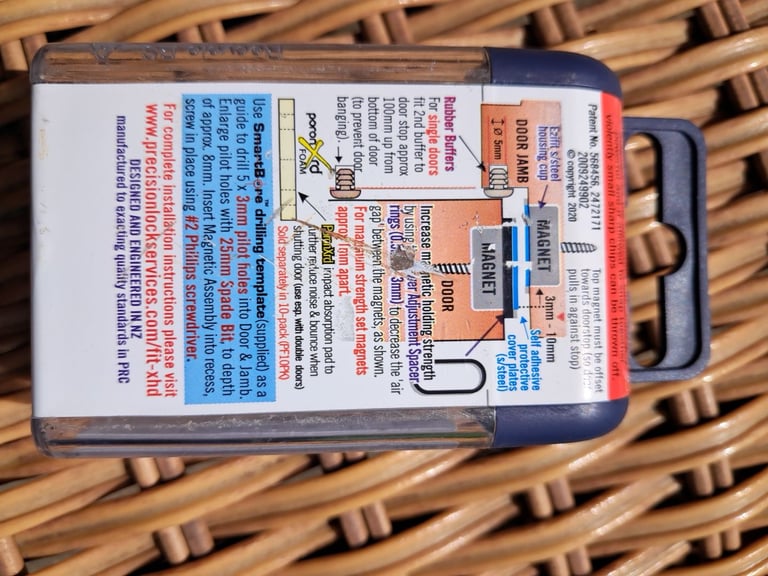 violently small sharp chips can be thrown off
Patent No. 568456, 2472171
2009249902
© copyright 2020
Top magnet must be offset
towards doorstop (so door
pulls in against stop)
Ezifit s/steel
housing cup
MAGNET
3mm - 10mm
DOOR JAMB
Ø 5mm
Self adhesive
protective
cover plates
(s/steel)
MAGNET
DOOR
Rubber Buffers
For single doors
fit 2nd buffer to
door stop approx
100mm up from
bottom of door
(to prevent door
banging)
Increase magnetic holding strength
by using Adjustment Spacer
rings 3mm) to decrease the 'air
gap' between the magnets, as shown.
For maximum strength set magnets
approx mm apart.
poronXrd
FOAM
impact absorption pad to
further reduce noise & bounce when
shutting door (use esp. with double doors)
Sold separately in 10-pack (PF10PK)
Use SmartBore™ drilling template (supplied) as a
guide to drill 5 x 3mm pilot holes into Door & Jamb.
Enlarge pilot holes with 25mm Spade Bit, to depth
of approx. 8mm. Insert Magnetic Assembly into recess,
screw in place using #2 Phillips screwdriver.
For complete installation instructions please visit
www.precisionlockservices.com/fit-xhd
DESIGNED AND ENGINEERED IN NZ
manufactured to exacting quality standards in PRC